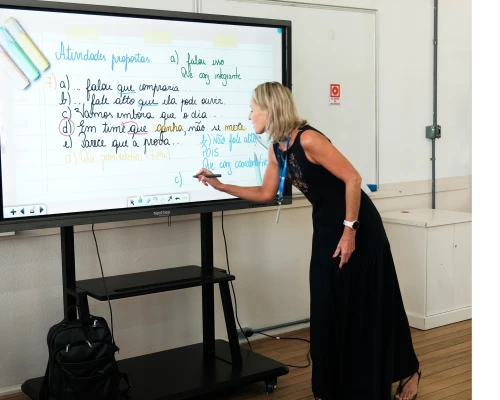 Atividades propostas
a) falou isso
Que conj integrante
a)... falou que compraria
b)... fale alto que ela pode ouvir.
c) Vamos embora que o dia...
d) Em time que ganha não se mexe
e) Parece que a prova...
b) Não fale alto
POIS
Que conj coordenativa
c)